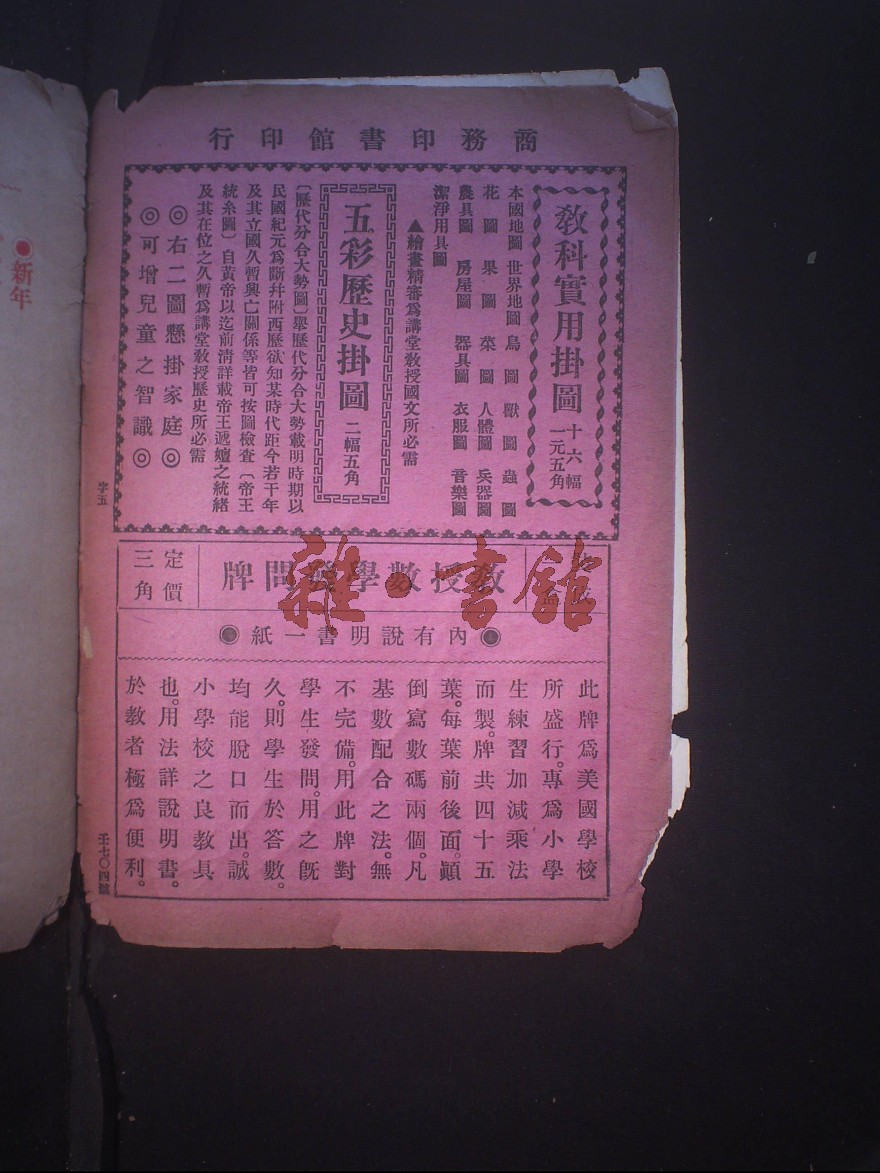 商務印書館印行
教科實用掛圖 十六幅 一元五角
本國地圖 世界地圖 鳥圖 獸圖 蟲圖
花圖 果圖 菜圖 人體圖 兵器圖
農具圖 房屋圖 器具圖 衣服圖 音樂圖
潔淨用具圖
▲繪畫精審爲講堂敎授國文所必需
五彩歷史掛圖 二幅五角
〔歷代分合大勢圖〕舉歷代分合大勢載明時期以
民國紀元爲斷幷附西歷欲知某時代距今若干年
及其立國久暫興亡關係等皆可按圖檢查〔帝王
統系圖〕自黃帝以迄前淸詳載帝王遞嬗之統緒
及其在位之久暫爲講堂敎授歷史所必需
◎右二圖懸掛家庭◎
◎可增兒童之智識◎
字五
敎授數學發問牌
定價
三角
內有說明書一紙
此牌爲美國學校
所盛行。專爲小學
生練習加減乘法
而製。牌共四十五
葉。每葉前後面。顚
倒寫數碼兩個。凡
基數配合之法。無
不完備。用此牌對
學生發問。用之旣
久。則學生於答數。
均能脫口而出。誠
小學校之良敎具
也。用法詳說明書。
於敎者極爲便利。
壬七〇四號
雜·書館
●新年